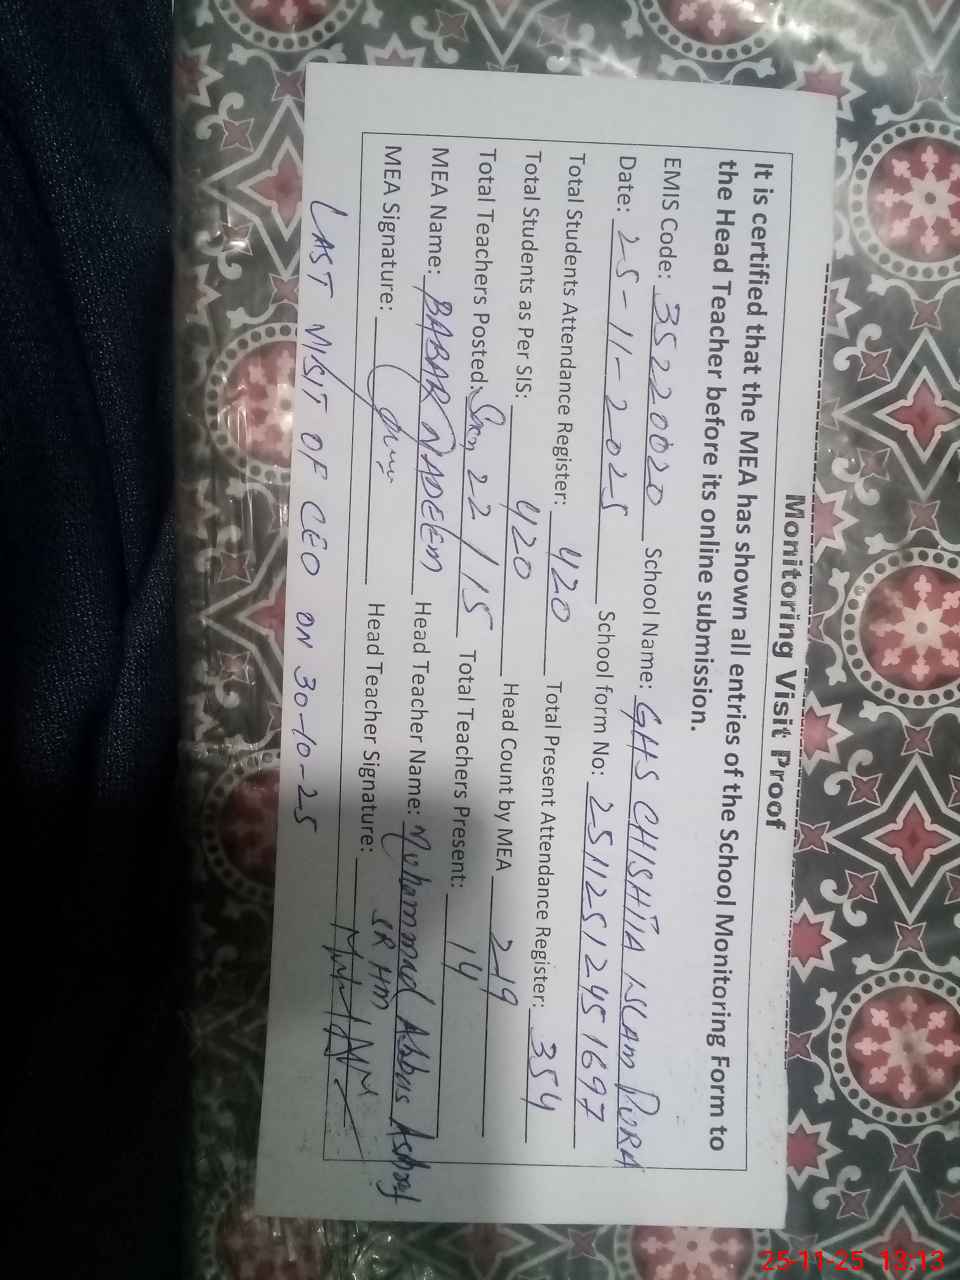 Monitoring Visit Proof
It is certified that the MEA has shown all entries of the School Monitoring Form to
the Head Teacher before its online submission.
EMIS Code: 35220020 School Name: GHS CHISHTIA ISLAM PURA
Date: 25-11-2025 School form No: 25112512451697
Total Students Attendance Register: 420 Total Present Attendance Register: 354
Total Students as Per SIS: 420 Head Count by MEA 219
Total Teachers Posted: 22/15 Total Teachers Present: 14
MEA Name: BABAR NADEEM Head Teacher Name: Muhammad Abbas Ashraf
SR HM
MEA Signature: Head Teacher Signature:
LAST VISIT OF CEO ON 30-10-25
25-11-25 13:13